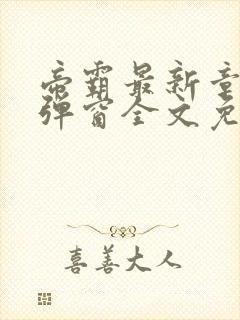 帝霸最新章
弹窗全文免
喜善大人